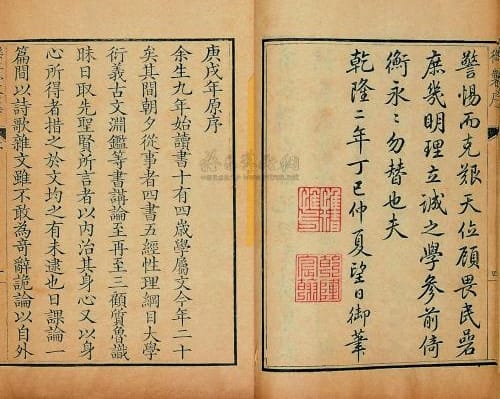 警惕而克艱天位顧畏民碞
庶幾明理立誠之學參前倚
衡永〻勿替也夫
乾隆二年丁巳仲夏望日御筆
惟精惟一
乾隆宸翰
庚戌年原序
余生九年始讀書十有四歲學屬文今年二十
矣其間朝夕從事者四書五經性理綱目大學
衍義古文淵鑑等書講論至再至三顧質魯識
昧日取先聖賢所言者以內治其身心又以身
心所得者措之於文均之有未逮也日課論一
篇間以詩歌雜文雖不敢為奇辭詭論以自外